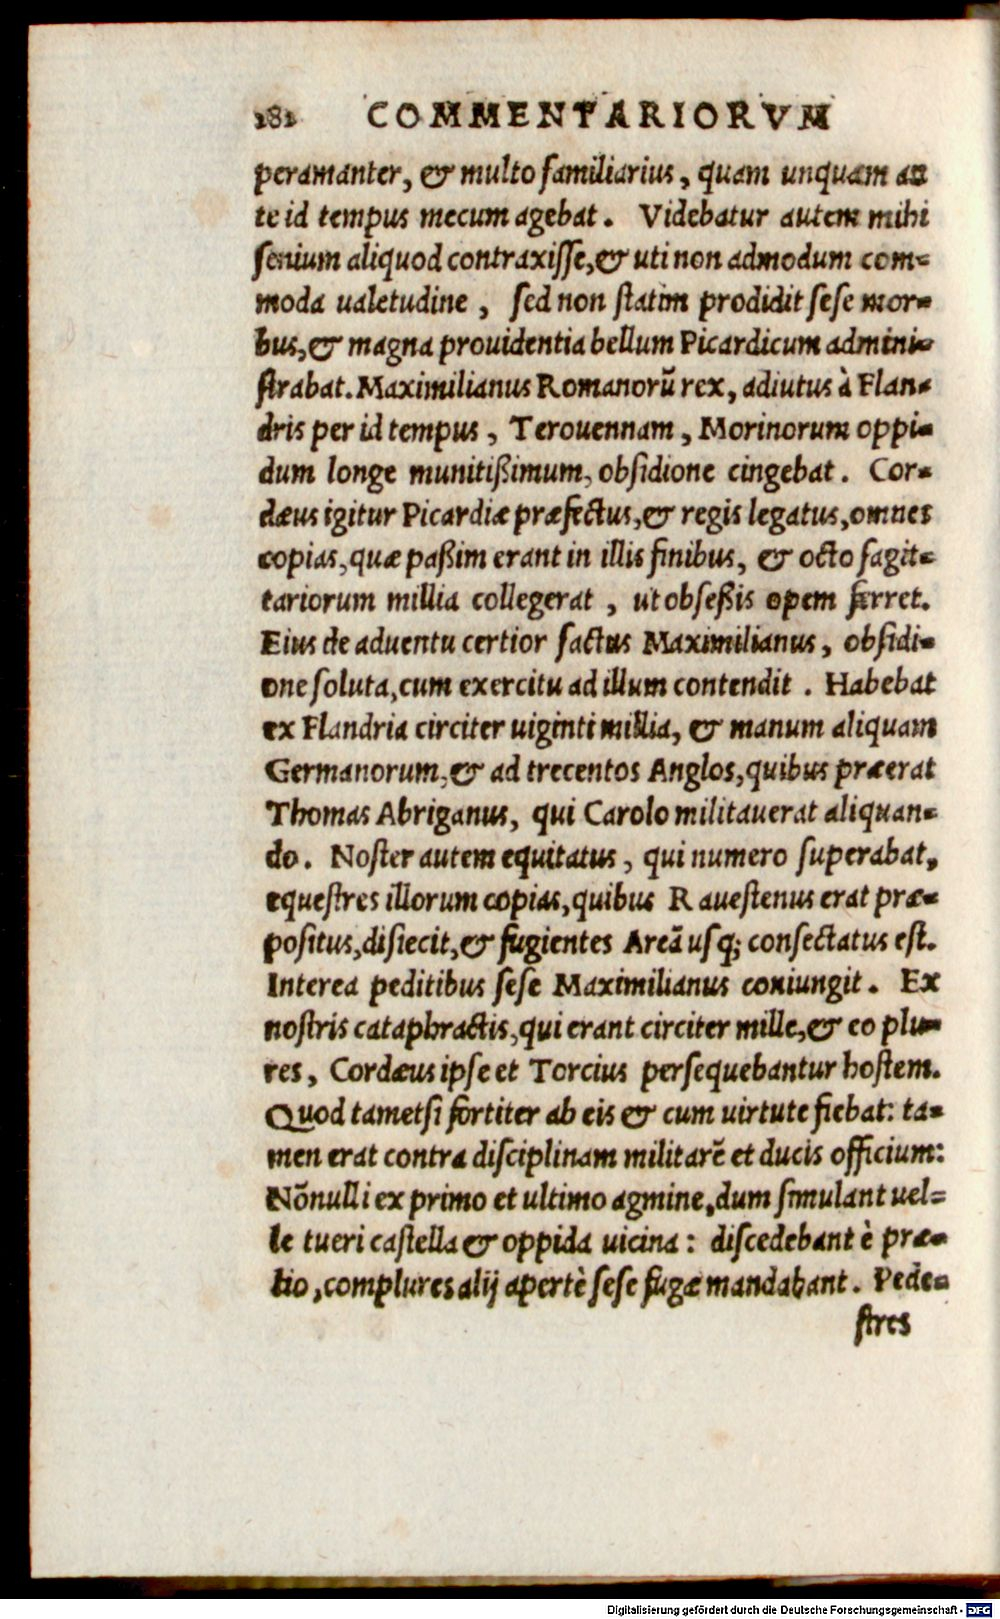 282 COMMENTARIORVM
peramanter, & multo familiarius, quam unquam an
te id tempus mecum agebat. Videbatur autem mihi
senium aliquod contraxisse, & uti non admodum com-
moda ualetudine, sed non statim prodidit sese mor-
bus, & magna prouidentia bellum Picardicum admini-
strabat. Maximilianus Romanorū rex, adiutus à Flan-
dris per id tempus, Terouennam, Morinorum oppi-
dum longe munitißimum, obsidione cingebat. Cor-
dæus igitur Picardiæ præfectus, & regis legatus, omnes
copias, quæ paßim erant in illis finibus, & octo sagit-
tariorum millia collegerat, ut obseßis opem ferret.
Eius de aduentu certior factus Maximilianus, obsidi-
one soluta, cum exercitu ad illum contendit. Habebat
ex Flandria circiter uiginti millia, & manum aliquam
Germanorum, & ad trecentos Anglos, quibus præerat
Thomas Abriganus, qui Carolo militauerat aliquan-
do. Noster autem equitatus, qui numero superabat,
equestres illorum copias, quibus Rauestenus erat præ-
positus, disiecit, & fugientes Areā usq; consectatus est.
Interea peditibus sese Maximilianus coniungit. Ex
nostris cataphractis, qui erant circiter mille, & eo plu-
res, Cordæus ipse et Torcius persequebantur hostem.
Quod tametsi fortiter ab eis & cum uirtute fiebat: ta-
men erat contra disciplinam militarē et ducis officium:
Nōnulli ex primo et ultimo agmine, dum simulant uel-
le tueri castella & oppida uicina: discedebant è præ-
lio, complures alij apertè sese fugæ mandabant. Pede-
stres
Digitalisierung gefördert durch die Deutsche Forschungsgemeinschaft - DFG